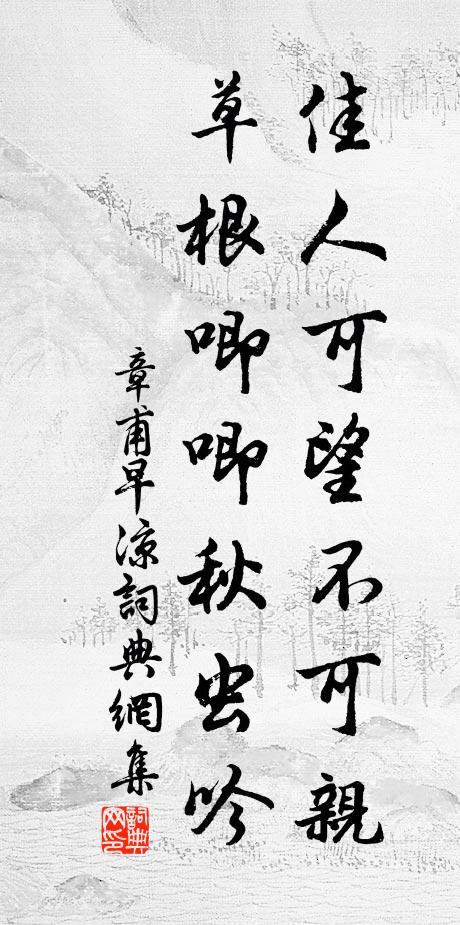 佳人可望不可親
草根唧唧秋虫吟
章甫早涼詞典網集
詞典網印